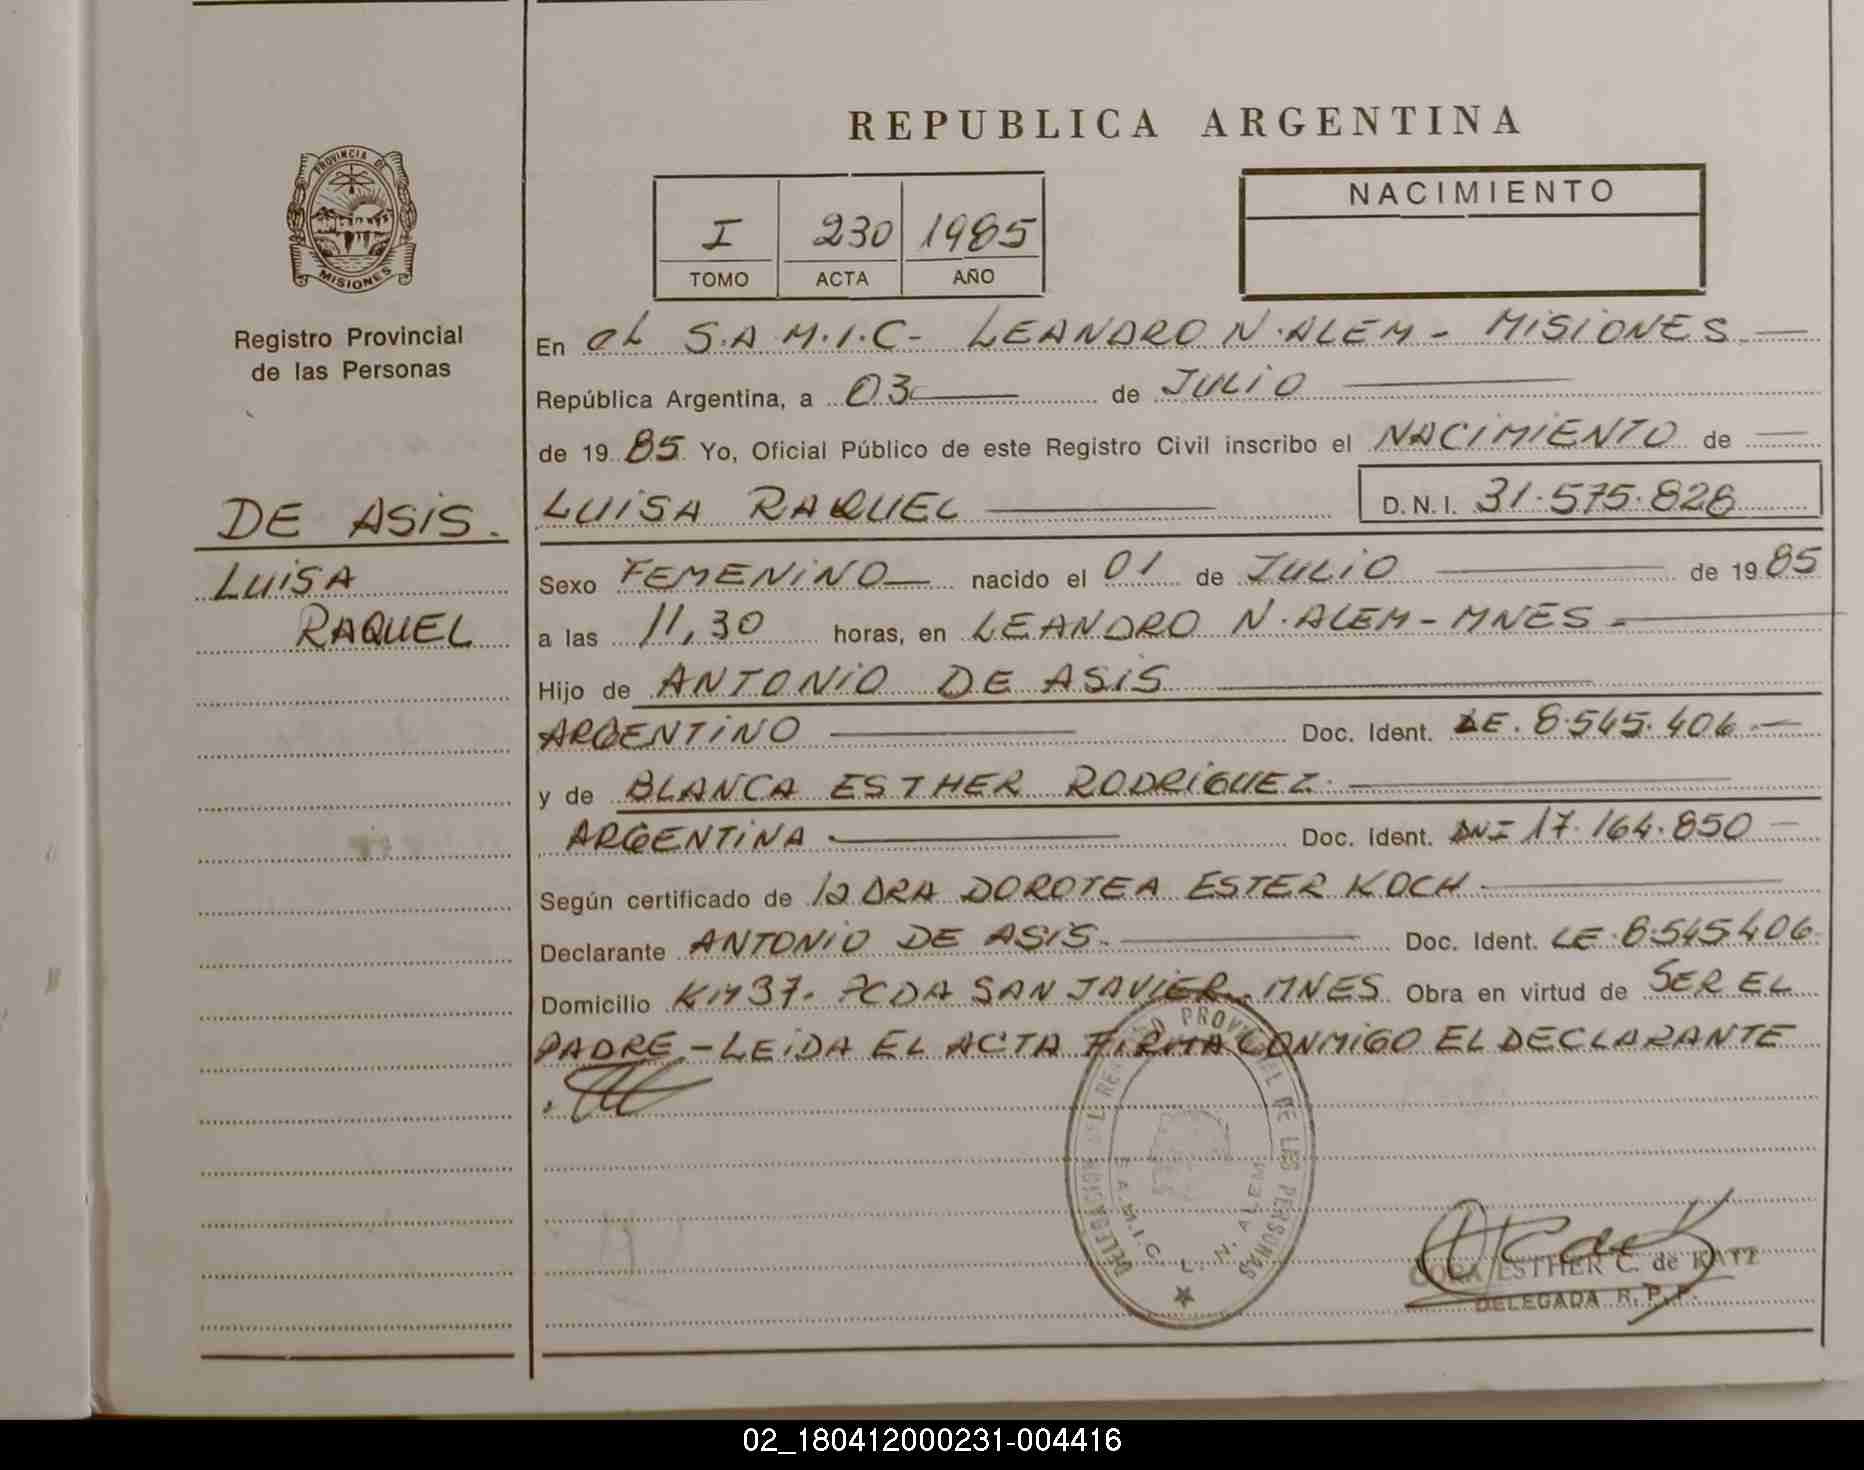 REPUBLICA ARGENTINA
PROVINCIA DE
MISIONES
Registro Provincial
de las Personas
I 230 1985
TOMO ACTA AÑO
NACIMIENTO
En el S.A.M.I.C- LEANDRO N. ALEM - MISIONES
República Argentina, a 03 de JULIO
de 1985 Yo, Oficial Público de este Registro Civil inscribo el NACIMIENTO de
DE ASIS.
LUISA
RAQUEL
LUISA RAQUEL D.N.I. 31.575.828
Sexo FEMENINO nacido el 01 de JULIO de 1985
a las 11,30 horas, en LEANDRO N. ALEM - MNES -
Hijo de ANTONIO DE ASIS
ARGENTINO Doc. Ident. LE. 8.545.406.-
y de BLANCA ESTHER RODRIGUEZ.
ARGENTINA Doc. Ident. DNI 17.164.850 -
Según certificado de la DRA DOROTEA ESTER KOCH -
Declarante ANTONIO DE ASIS.- Doc. Ident. LE. 8.545.406.
Domicilio KM 37. PCDA SAN JAVIER - MNES Obra en virtud de SER EL
PADRE - LEIDA EL ACTA FIRMA CONMIGO EL DECLARANTE
DELEGACION DEL REGISTRO PROVINCIAL DE LAS PERSONAS
S.A.M.I.C. L. N. ALEM
CORA ESTHER C. de KATZ
DELEGADA R.P.P.
02_180412000231-004416